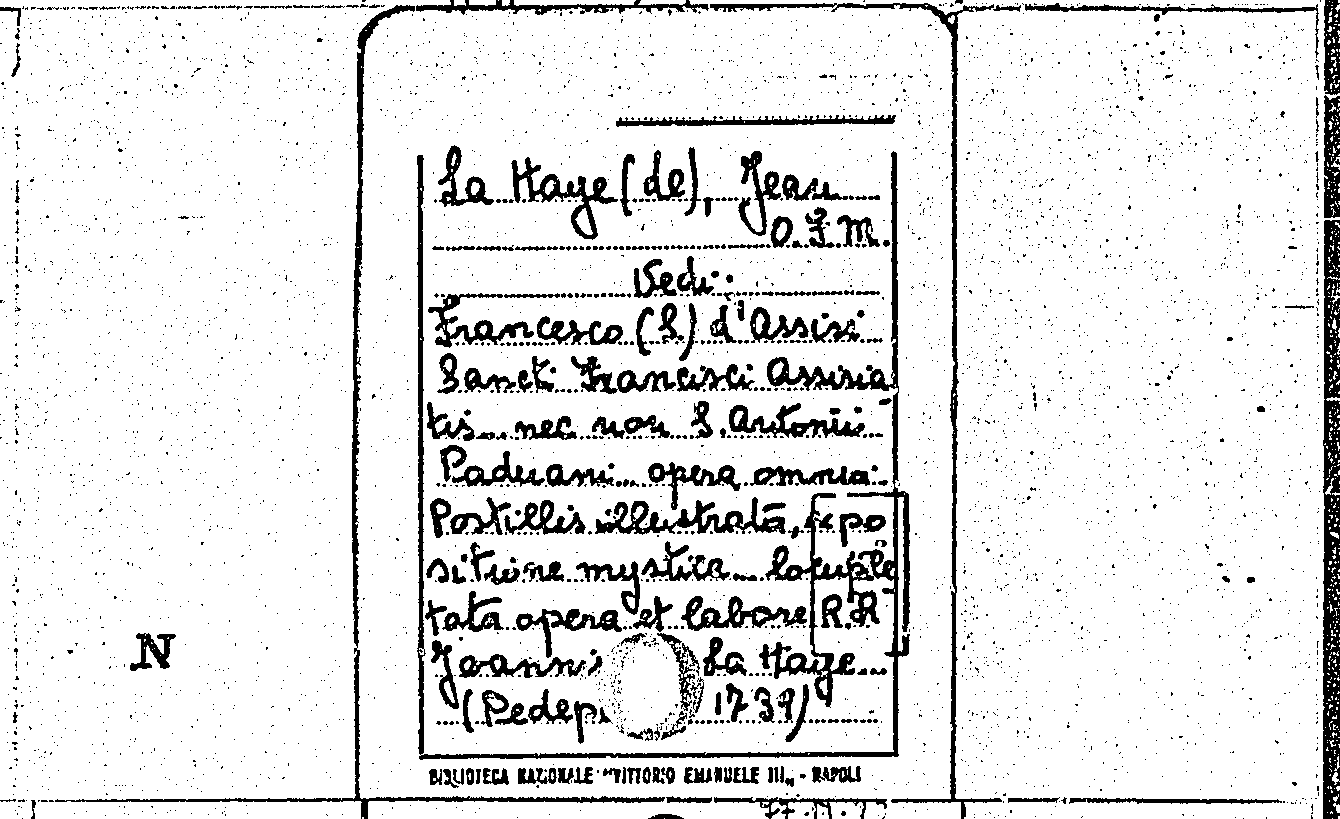 La Haye (de), Jean
O.F.M.
Vedi:
Francesco (S.) d'Assisi
Sancti Francisci Assisia
tis... nec non S. Antonii
Paduani... opera omnia:
Postillis illustrata, expo
sitione mystica... locuple
tata opera et labore R.R
Joanni La Haye...
(Pedep 1739)
N
BIBLIOTECA NAZIONALE "VITTORIO EMANUELE III„ - NAPOLI